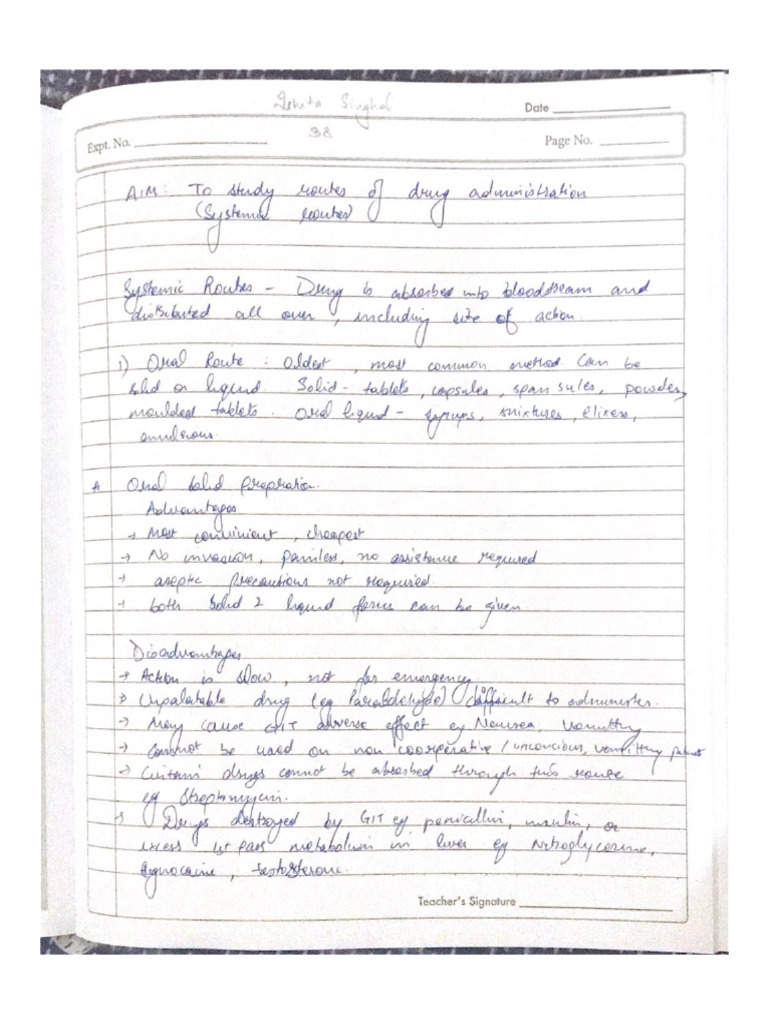 Ishita Singhal
Date
38
Expt. No.
Page No.
AIM: To study routes of drug administration
(Systemic Routes)
Systemic Routes - Drug is absorbed into bloodstream and
distributed all over, including site of action.
1) Oral Route : Oldest, most common method Can be
solid or liquid. Solid - tablets, capsules, spansules, powders,
moulded tablets. Oral liquid - syrups, mixtures, elixers,
A Oral Solid prepration.
Advantages
→ Most convinient, cheapest
→ No invasion, painless, no assistance required
→ aseptic precautions not required.
→ both Solid & liquid forms can be given
Disadvantages
→ Action is slow, not for emergency.
→ Unpalatable drug (eg Paraldehyde) difficult to administer.
→ May cause GIT adverse effect eg Nausea, Vomitting
→ Cannot be used on non cooperative / unconcious, vomitting patient
→ Certain drugs cannot be absorbed through this route
eg Streptomycin.
→ Drugs destroyed by GIT eg penicillin, insulin, or
excess 1st pass metabolism in liver eg Nitroglycerine,
lignocaine, testosterone.
Teacher's Signature